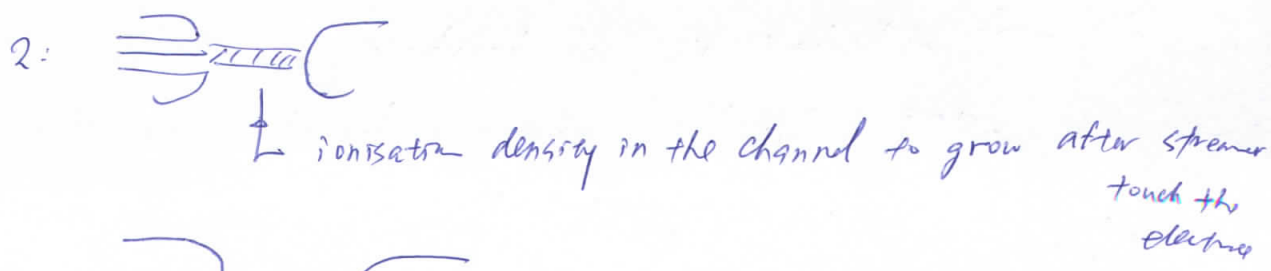 2:
ionisation density in the channel to grow after streamer
touch the
electrode